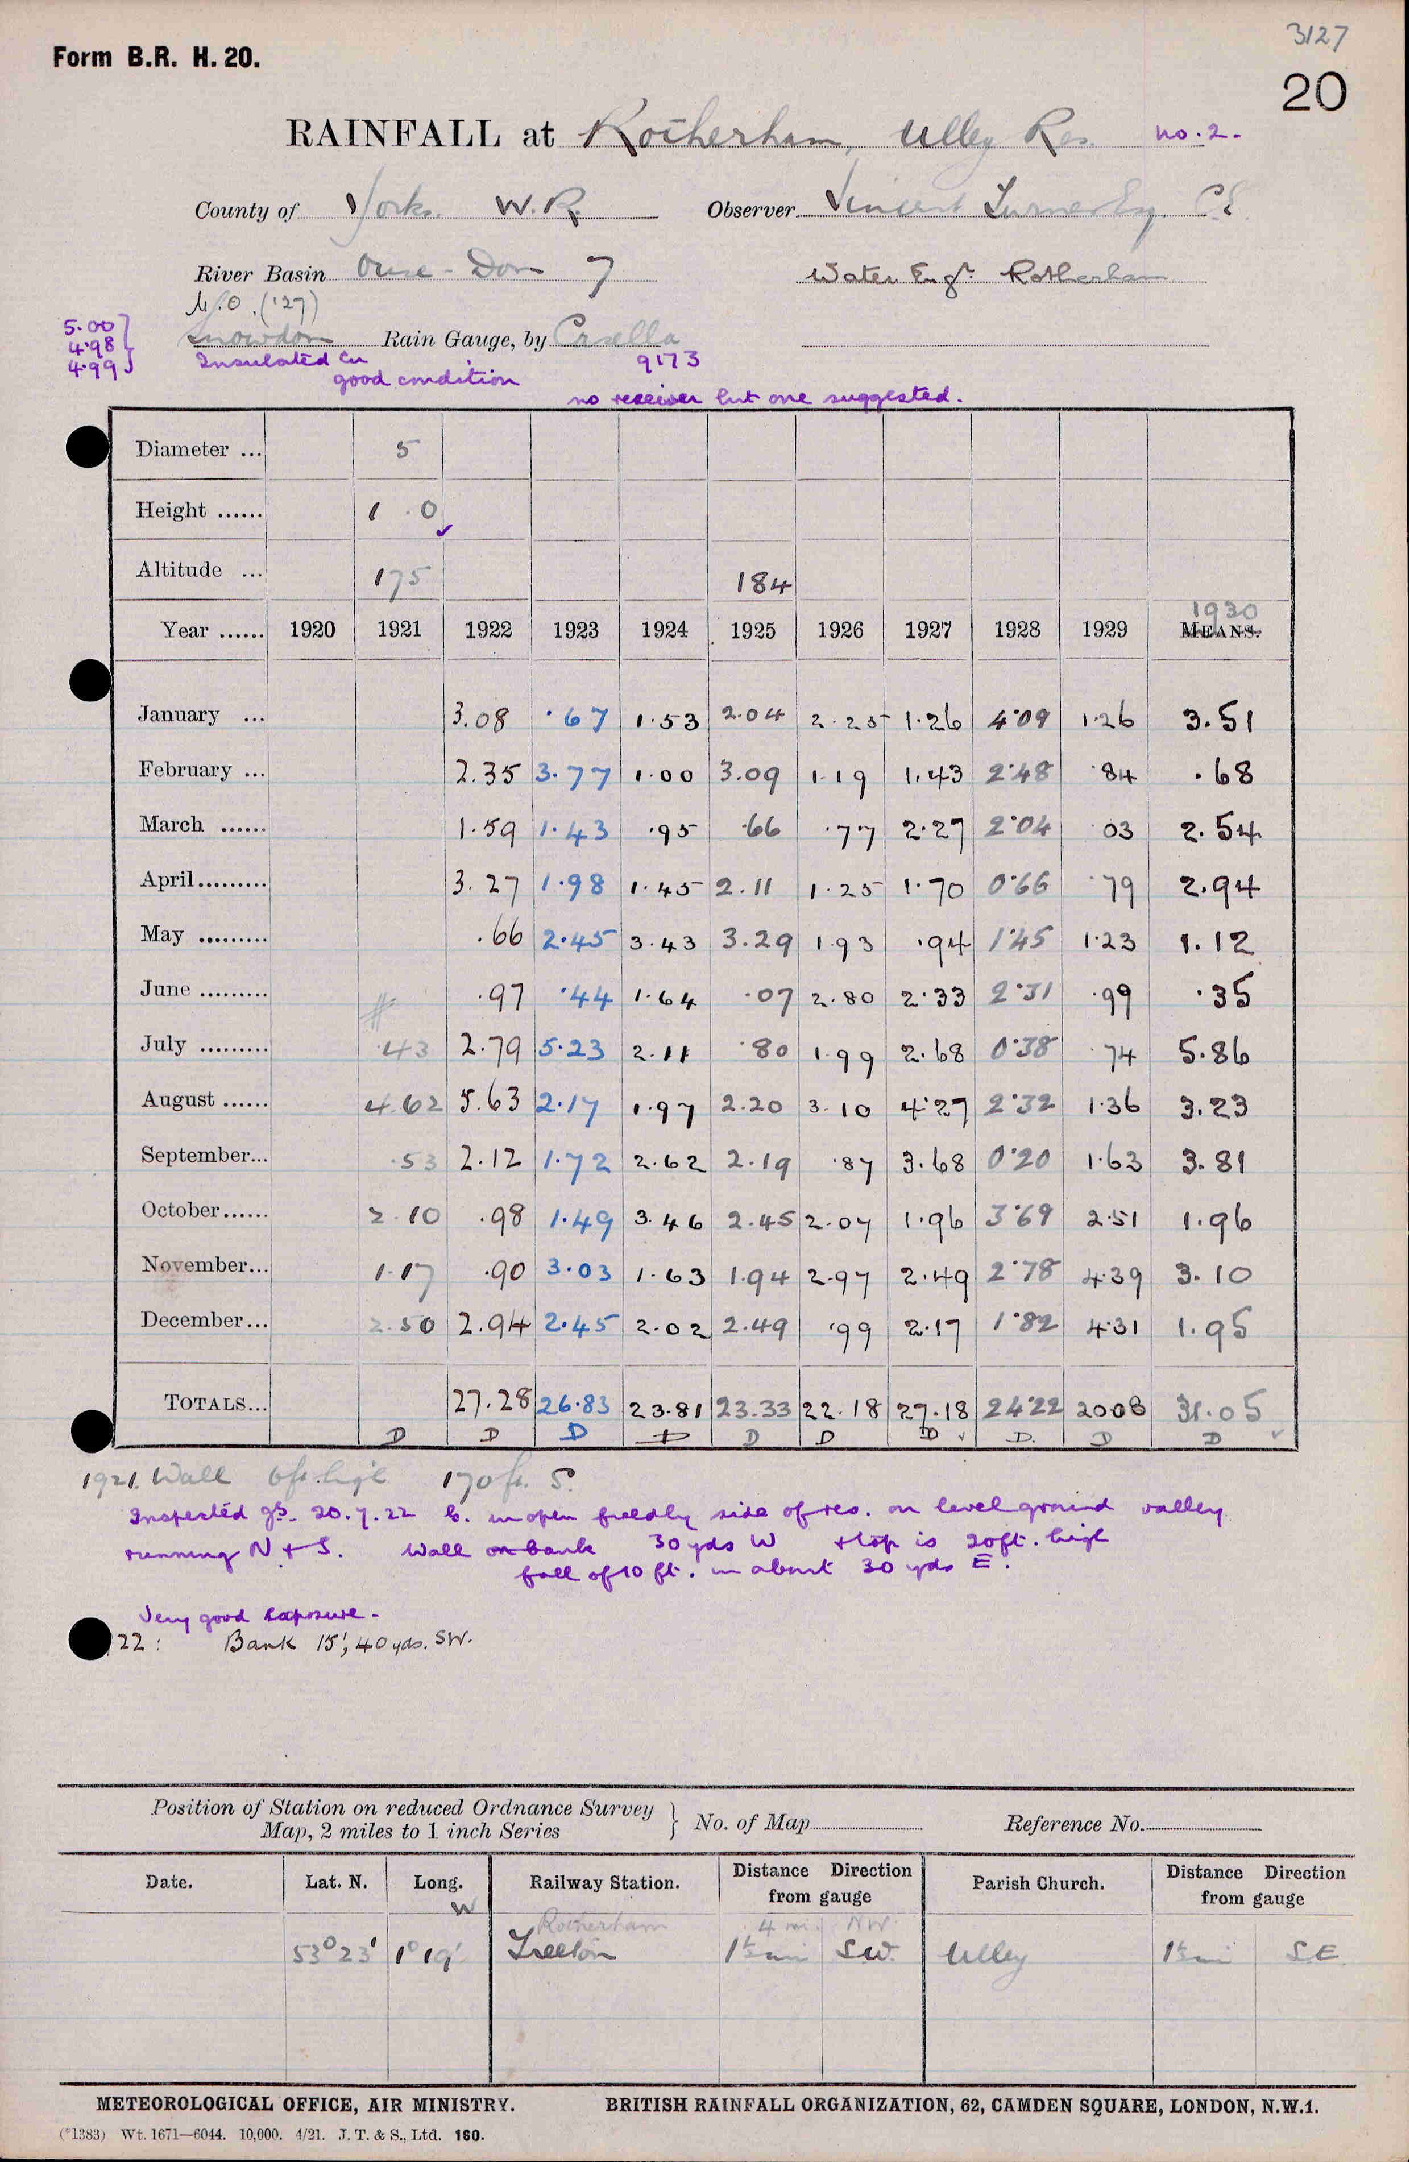 3127
Form B.R. H. 20.
20
RAINFALL at Rotherham, Ulley Res. no. 2.
County of Yorks. W.R. Observer Vincent Turner Esq. C.E.
River Basin Ouse - Don 7 Water Engr. Rotherham
M.O. ('27)
5.00 } Snowdon Rain Gauge, by Casella
4.98 Insulated Cu 9173
4.99 good condition
no receiver but one suggested.
Diameter ... 5
Height ...... 1 . 0
Altitude ... 175 184
1930
Year ...... 1920 1921 1922 1923 1924 1925 1926 1927 1928 1929 MEANS.
January ... 3.08 .67 1.53 2.04 2.25 1.26 4.09 1.26 3.51
February ... 2.35 3.77 1.00 3.09 1.19 1.43 2.48 .84 .68
March ...... 1.59 1.43 .95 .66 .77 2.27 2.04 03 2.54
April......... 3.27 1.98 1.45 2.11 1.25 1.70 0.66 .79 2.94
May ......... .66 2.45 3.43 3.29 1.93 .94 1.45 1.23 1.12
June ......... # .97 .44 1.64 .07 2.80 2.33 2.31 .99 .35
July ......... .43 2.79 5.23 2.11 .80 1.99 2.68 0.38 .74 5.86
August ...... 4.62 5.63 2.17 1.97 2.20 3.10 4.27 2.32 1.36 3.23
September... .53 2.12 1.72 2.62 2.19 .87 3.68 0.20 1.63 3.81
October...... 2.10 .98 1.49 3.46 2.45 2.07 1.96 3.69 2.51 1.96
November... 1.17 .90 3.03 1.63 1.94 2.97 2.49 2.78 4.39 3.10
December... 2.50 2.94 2.45 2.02 2.49 .99 2.17 1.82 4.31 1.95
TOTALS... 27.28 26.83 23.81 23.33 22.18 27.18 24.22 20.08 31.05
D D D D D D D D D D
1921. Wall 6ft. high 170 ft. S.
Inspected 20.7.22 in open field by side of res. on level ground valley
running N + S. Wall on bank 30 yds W + top is 20ft. high
fall of 10 ft. in about 30 yds E.
Very good Exposure.
22: Bank 15', 40 yds. SW.
Position of Station on reduced Ordnance Survey
Map, 2 miles to 1 inch Series } No. of Map Reference No.
Date. Lat. N. Long. W Railway Station. Distance Direction from gauge Parish Church. Distance Direction from gauge
Rotherham 4 mi. NW.
53° 23' 1° 19' Treeton S.W. Ulley S E
METEOROLOGICAL OFFICE, AIR MINISTRY. BRITISH RAINFALL ORGANIZATION, 62, CAMDEN SQUARE, LONDON, N.W.1.
(*1383) Wt. 1671—6044. 10,000. 4/21. J. T. & S., Ltd. 160.